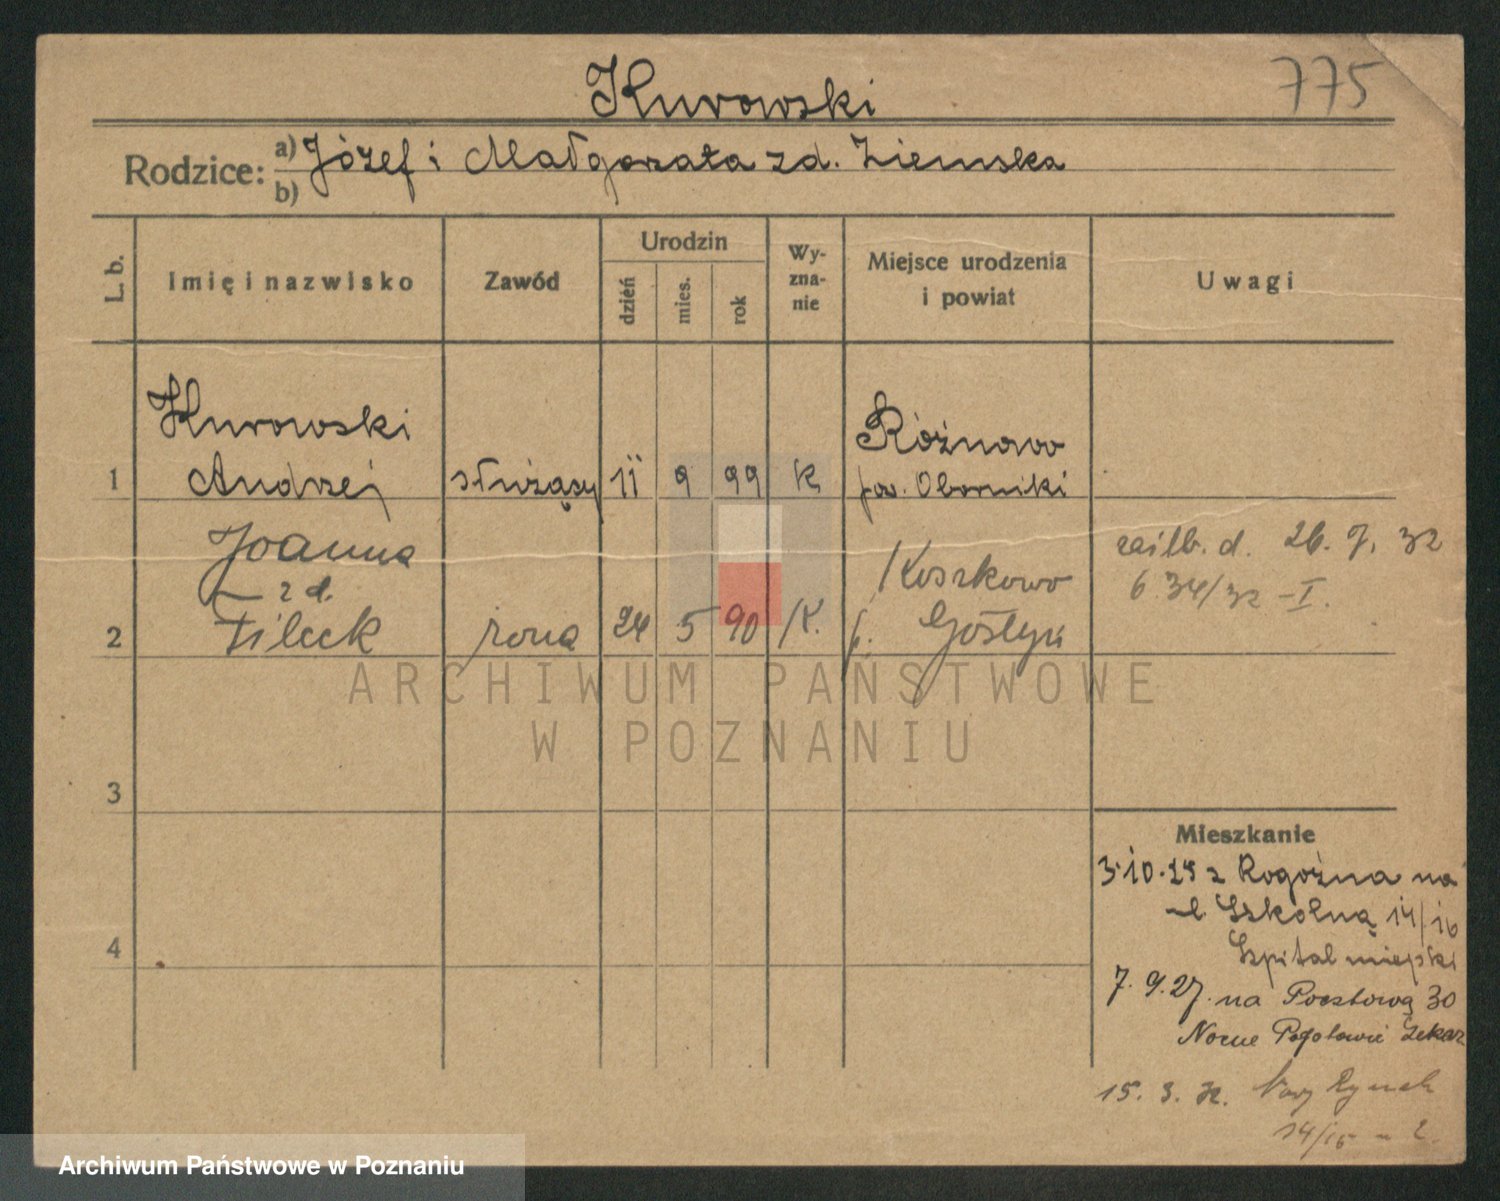 Kurowski
775
Rodzice: a) Józef i Małgorzata zd. Ziemska
b)
L. b.
Imię i nazwisko
Zawód
Urodzin
dzień
mies.
rok
Wy-
zna-
nie
Miejsce urodzenia
i powiat
Uwagi
Kurowski
Różnowo
1 Andrzej służący 11 9 99 K pow. Oborniki
Joanna
zd.
2 Fileck żona 24 5 90 K. p. Gostyń
Koszkowo
zaślb. d. 26. 7. 32
634/32 - I.
ARCHIWUM PAŃSTWOWE
W POZNANIU
3
4
Mieszkanie
3.10.25 z Rogoźna na
ul. Szkolną 14/16
Szpital miejski
7.9.27. na Pocztową 30
Nocne Pogotowie Lekar
15. 3. 32. Nowy Rynek
14/15
Archiwum Państwowe w Poznaniu